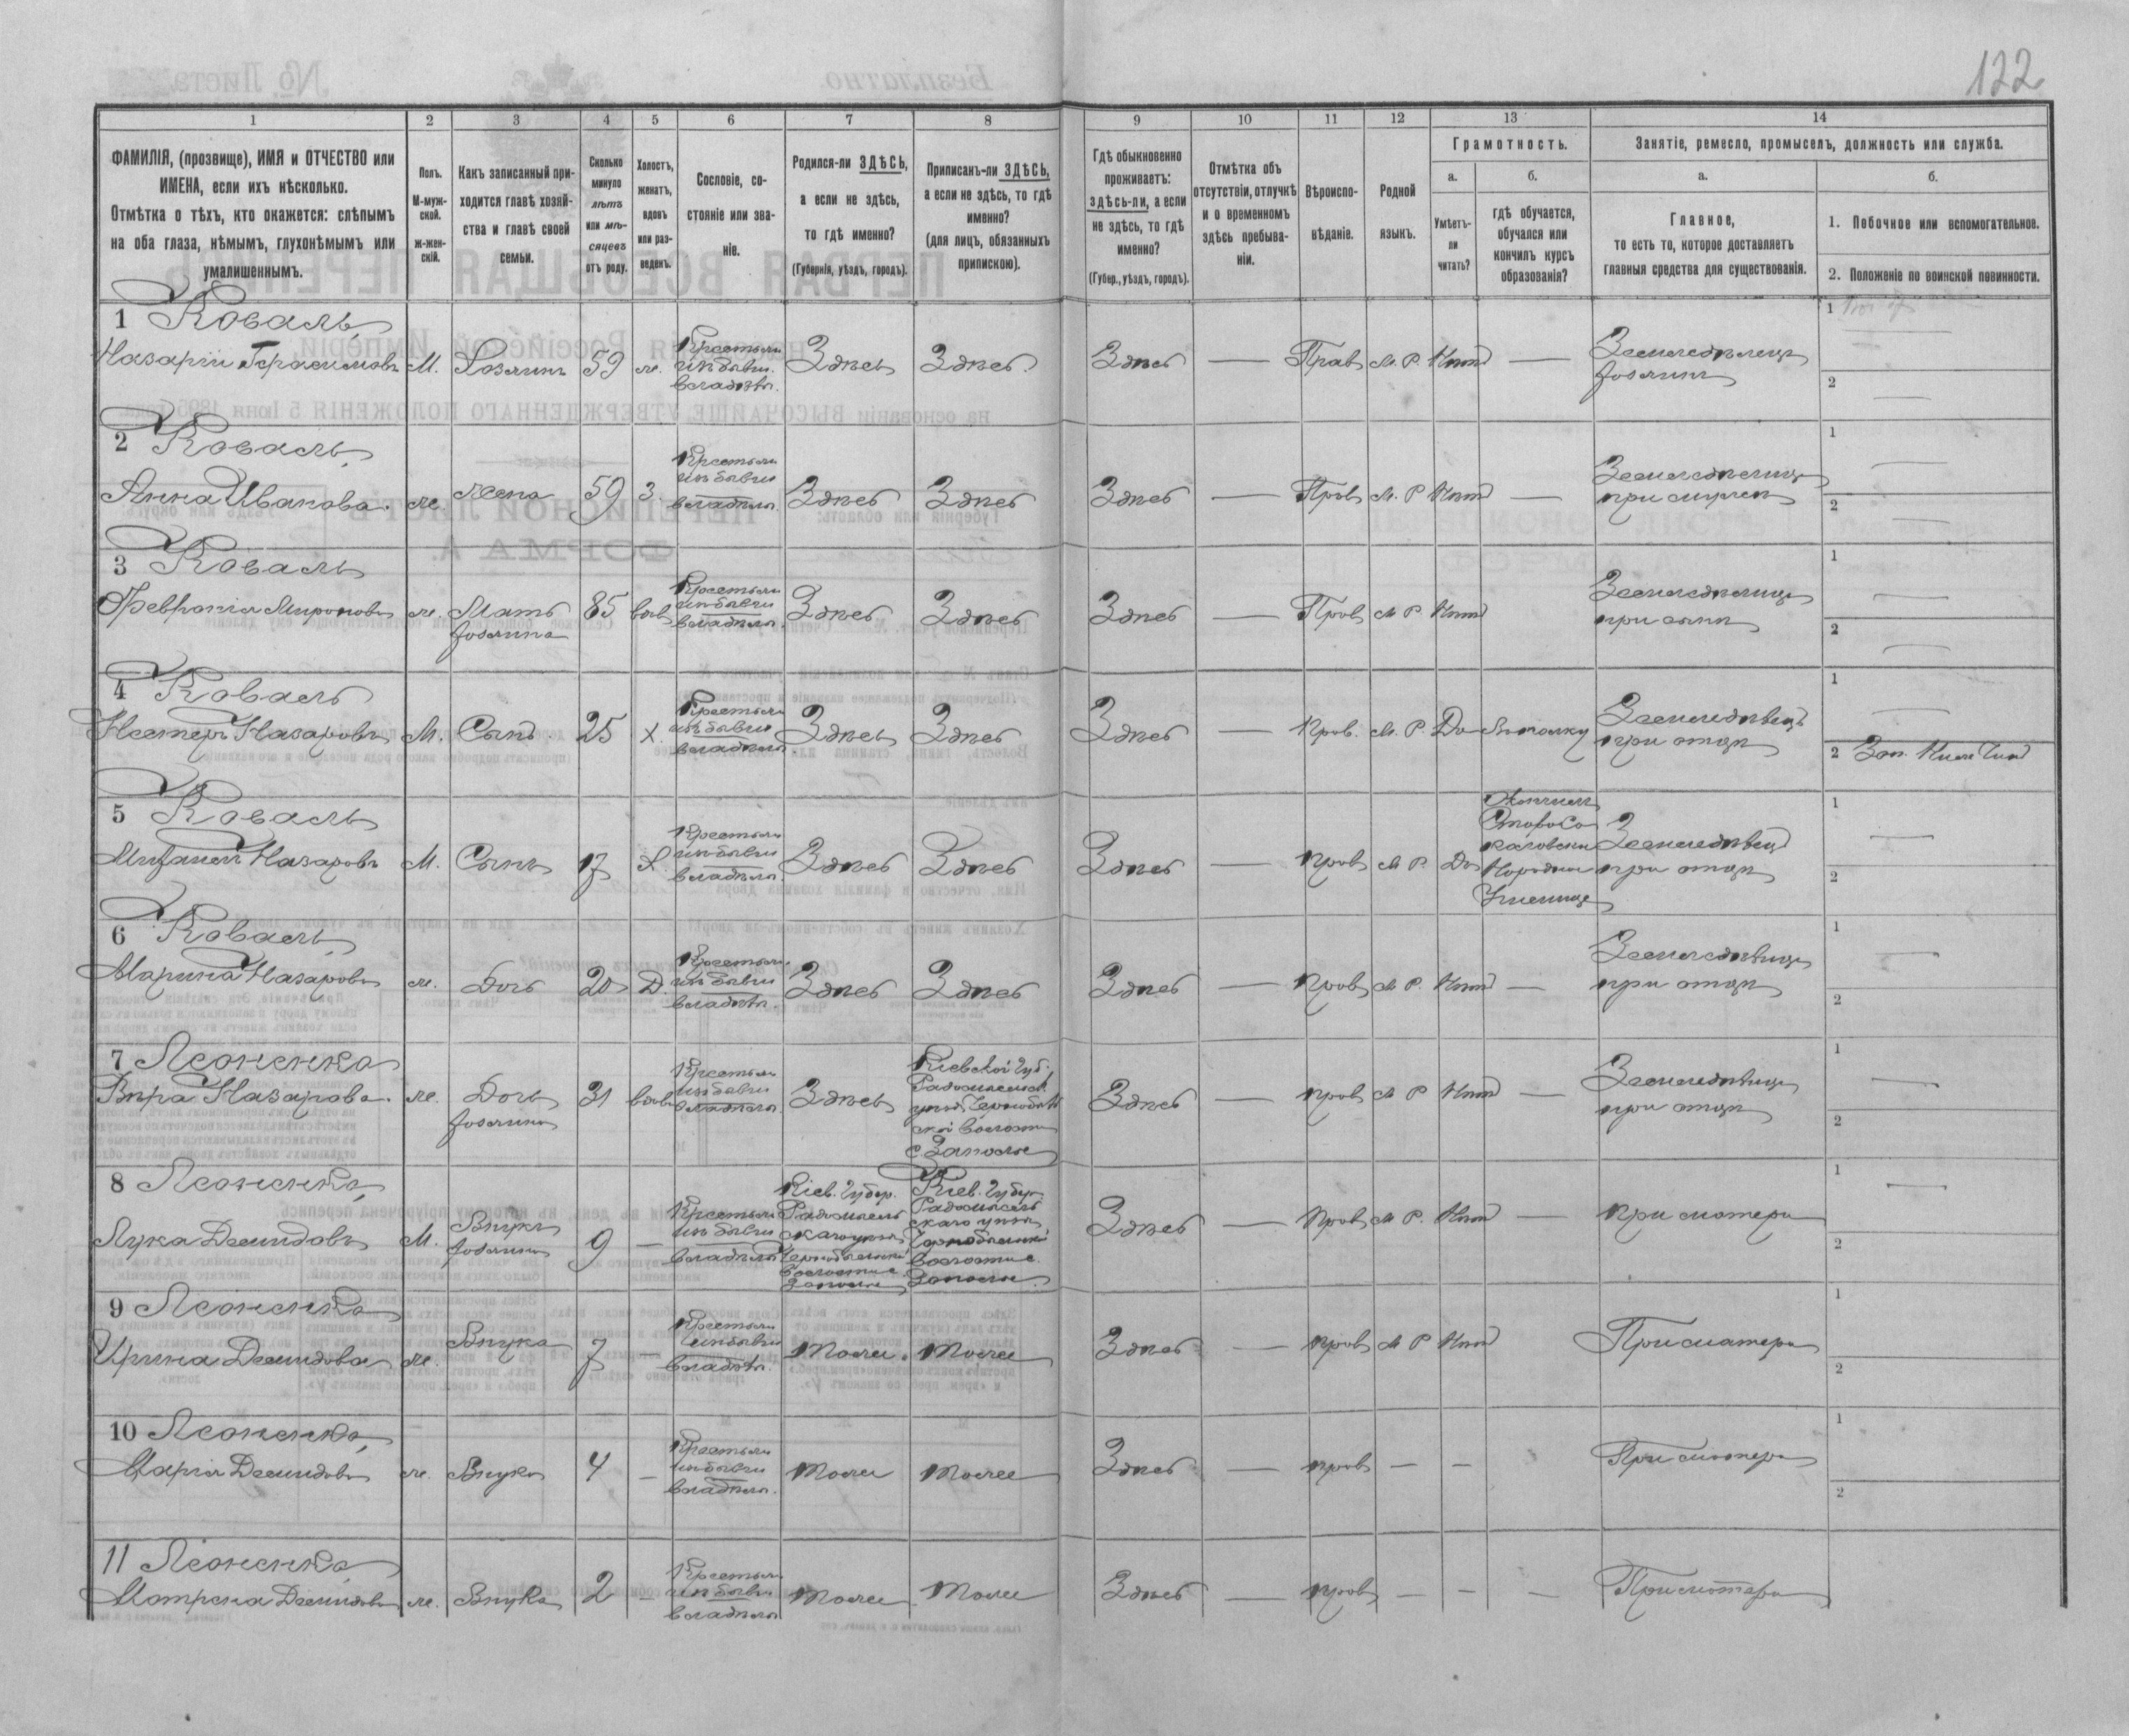 122
1 2 3 4 5 6 7 8 9 10 11 12 13 14
ФАМИЛІЯ, (прозвище), ИМЯ и ОТЧЕСТВО или ИМЕНА, если ихъ нѣсколько.
Отмѣтка о тѣхъ, кто окажется: слѣпымъ на оба глаза, нѣмымъ, глухонѣмымъ или умалишеннымъ.
Полъ. М-мужской. ж-женскій.
Какъ записанный приходится главѣ хозяйства и главѣ своей семьи.
Сколько минуло лѣтъ или мѣсяцевъ отъ роду.
Холостъ, женатъ, вдовъ или разведенъ.
Сословіе, состояніе или званіе.
Родился-ли ЗДѢСЬ, а если не здѣсь, то гдѣ именно?
(Губернія, уѣздъ, городъ).
Приписанъ-ли ЗДѢСЬ, а если не здѣсь, то гдѣ именно?
(для лицъ, обязанныхъ припискою).
Гдѣ обыкновенно проживаетъ: здѣсь-ли, а если не здѣсь, то гдѣ именно?
(Губер., уѣздъ, городъ).
Отмѣтка объ отсутствіи, отлучкѣ и о временномъ здѣсь пребываніи.
Вѣроисповѣданіе.
Родной языкъ.
Грамотность.
а. Умѣетъ-ли читать?
б. гдѣ обучается, обучался или кончилъ курсъ образованія?
Занятіе, ремесло, промыселъ, должность или служба.
а. Главное, то есть то, которое доставляетъ главныя средства для существованія.
б.
1. Побочное или вспомогательное.
2. Положеніе по воинской повинности.
1 Коваль
Назарій Герасимовъ М. Хозяинъ 59 ж. Крестьянинъ бывш. владѣл. Здѣсь Здѣсь Здѣсь — Прав М. Р. Нѣтъ — Земледѣлецъ хозяинъ
2 Коваль
Анна Иванова ж. Жена 59 З. Крестьянинъ бывш владѣл. Здѣсь Здѣсь Здѣсь — Прав М. Р Нѣтъ — Земледѣлица при мужѣ
3 Коваль
Февронія Миронова ж. Мать хозяина 85 вдов Крестьянинъ бывш владѣл. Здѣсь Здѣсь Здѣсь — Прав М Р. Нѣтъ Земледѣлица при сынѣ
4 Коваль
Нестеръ Назаровъ М. Сынъ 25 Х. Крестьянинъ бывш владѣл. Здѣсь Здѣсь Здѣсь — Прав. М. Р. Да Земледѣлецъ при отцѣ
5 Коваль
Назаровъ М. Сынъ 17 Х. Крестьянинъ бывш владѣл. Здѣсь Здѣсь Здѣсь — Прав М Р. Да Народное Училище Земледѣлецъ при отцѣ
6 Коваль
Марина Назарова ж. Дочь 20 Д. Крестьянинъ бывш владѣл. Здѣсь Здѣсь Здѣсь — Прав М Р. Нѣтъ — Земледѣлица при отцѣ
7 Леоненко
Вѣра Назарова ж. Дочь хозяина 31 вдов Крестьянинъ бывш владѣл. Здѣсь Кіевской Губ. Радомысльск. уѣзд. Чернобыльской волости с. Заполье Здѣсь — Прав М Р Нѣтъ — Земледѣлица при отцѣ
8 Леоненко
Лука Демидовъ М. Внукъ хозяина 9 — Крестьянинъ бывш владѣл Кіев. Губер. Радомысльскаго уѣзда Чернобыльской Волости с. Заполье Кіев. Губер. Радомысльскаго уѣзда Чернобыльской Волости с. Заполье. Здѣсь — Прав М Р. Нѣтъ — при матери
9 Леоненко
Ирина Демидова ж. Внука 7 — Крестьянинъ бывш владѣл. тоже тоже Здѣсь — Прав М Р Нѣтъ При матери
10 Леоненко
Марія Демидова ж. Внука 4 — Крестьянинъ бывш владѣл. тоже тоже Здѣсь — Прав — — При матери
11 Леоненко
Матрена Демидова ж. Внука 2 — Крестьянинъ бывш владѣл тоже тоже Здѣсь — Прав — — — При матери